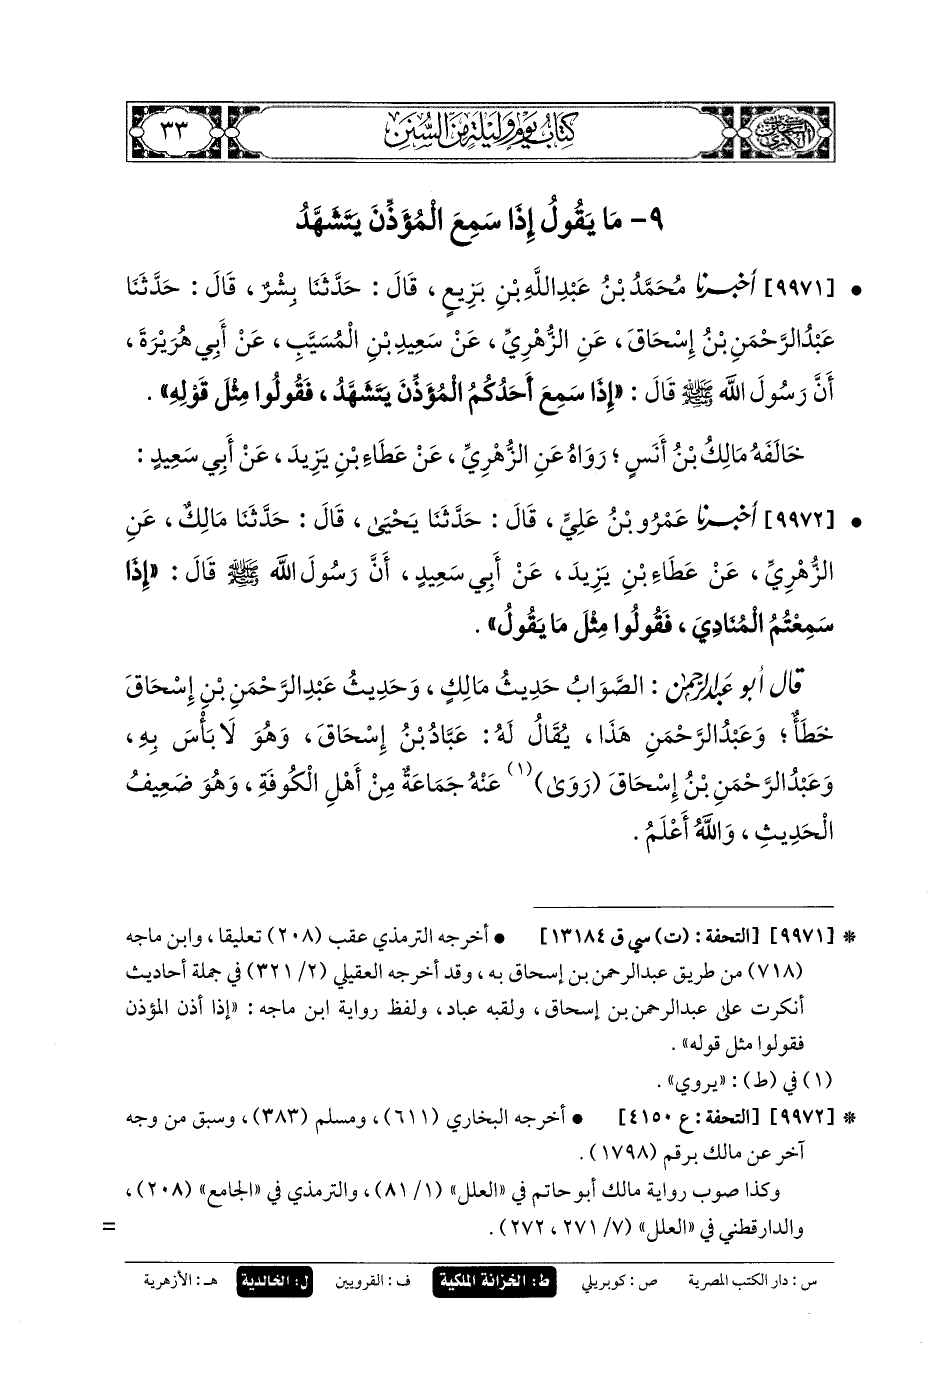 كتاب يوم وليلة من السنن
٣٣
٩- مَا يَقُولُ إِذَا سَمِعَ الْمُؤَذِّنَ يَتَشَهَّدُ
• [٩٩٧١] أَخْبَرَنَا مُحَمَّدُ بْنُ عَبْدِاللَّهِ بْنِ بَزِيعٍ، قَالَ: حَدَّثَنَا بِشْرٌ، قَالَ: حَدَّثَنَا
عَبْدُالرَّحْمَنِ بْنُ إِسْحَاقَ، عَنِ الزُّهْرِيِّ، عَنْ سَعِيدِ بْنِ الْمُسَيَّبِ، عَنْ أَبِي هُرَيْرَةَ،
أَنَّ رَسُولَ اللَّه ﷺ قَالَ: «إِذَا سَمِعَ أَحَدُكُمُ الْمُؤَذِّنَ يَتَشَهَّدُ، فَقُولُوا مِثْلَ قَوْلِهِ».
خَالَفَهُ مَالِكُ بْنُ أَنَسٍ؛ رَوَاهُ عَنِ الزُّهْرِيِّ، عَنْ عَطَاءِ بْنِ يَزِيدَ، عَنْ أَبِي سَعِيدٍ:
• [٩٩٧٢] أَخْبَرَنَا عَمْرُو بْنُ عَلِيٍّ، قَالَ: حَدَّثَنَا يَحْيَى، قَالَ: حَدَّثَنَا مَالِكٌ، عَنِ
الزُّهْرِيِّ، عَنْ عَطَاءِ بْنِ يَزِيدَ، عَنْ أَبِي سَعِيدٍ، أَنَّ رَسُولَ اللَّه ﷺ قَالَ: «إِذَا
سَمِعْتُمُ الْمُنَادِيَ، فَقُولُوا مِثْلَ مَا يَقُولُ».
قَالَ أَبُو عَبْدِالرَّحْمَنِ: الصَّوَابُ حَدِيثُ مَالِكٍ، وَحَدِيثُ عَبْدِالرَّحْمَنِ بْنِ إِسْحَاقَ
خَطَأٌ؛ وَعَبْدُالرَّحْمَنِ هَذَا، يُقَالُ لَهُ: عَبَّادُ بْنُ إِسْحَاقَ، وَهُوَ لَا بَأْسَ بِهِ،
وَعَبْدُالرَّحْمَنِ بْنُ إِسْحَاقَ (رَوَى)(١) عَنْهُ جَمَاعَةٌ مِنْ أَهْلِ الْكُوفَةِ، وَهُوَ ضَعِيفُ
الْحَدِيثِ، وَاللَّهُ أَعْلَمُ.
* [٩٩٧١] [التحفة: (ت) سي ق ١٣١٨٤] • أخرجه الترمذي عقب (٢٠٨) تعليقا، وابن ماجه
(٧١٨) من طريق عبدالرحمن بن إسحاق به، وقد أخرجه العقيلي (٢/ ٣٢١) في جملة أحاديث
أنكرت على عبدالرحمن بن إسحاق، ولقبه عباد، ولفظ رواية ابن ماجه: «إذا أذن المؤذن
فقولوا مثل قوله».
(١) في (ط): «يروي».
* [٩٩٧٢] [التحفة: ع ٤١٥٠] • أخرجه البخاري (٦١١)، ومسلم (٣٨٣)، وسبق من وجه
آخر عن مالك برقم (١٧٩٨).
وكذا صوب رواية مالك أبو حاتم في «العلل» (١/ ٨١)، والترمذي في «الجامع» (٢٠٨)،
والدارقطني في «العلل» (٧/ ٢٧١، ٢٧٢). =
س: دار الكتب المصرية ص: كوبريلي ط: الخزانة الملكية ف: القرويين ل: الخالدية هـ: الأزهرية